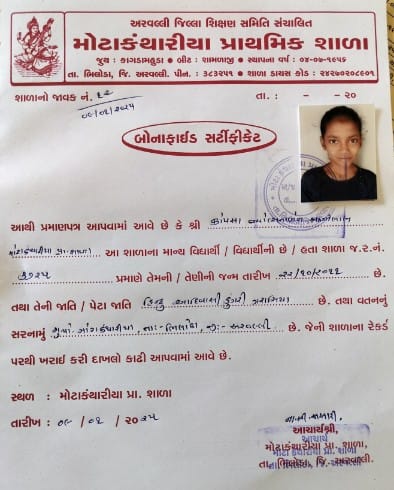 અરવલ્લી જિલ્લા શિક્ષણ સમિતિ સંચાલિત
મોટાકંથારીયા પ્રાથમિક શાળા
જુથ : કાગડામહુડા • બીટ : શામળાજી • સ્થાપના વર્ષ : ૦૪-૦૭-૧૯૫૬
તા. ભિલોડા, જિ. અરવલ્લી. પીન. : ૩૮૩૨૫૧ • શાળા ડાયસ કોડ : ૨૪૨૭૦૨૦૮૯૦૧
શાળાનો જાવક નં. ૧૨ તા. : - - ૨૦
૦૯/૦૧/૨૦૨૫
બોનાફાઈડ સર્ટીફીકેટ
આથી પ્રમાણપત્ર આપવામાં આવે છે કે શ્રી
આ શાળાના માન્ય વિદ્યાર્થી / વિદ્યાર્થીની છે / હતા શાળા જ.ર.નં.
પ્રમાણે તેમની / તેણીની જન્મ તારીખ ૨૨/૧૦/૨૦૧૧ છે.
તથા તેની જાતિ / પેટા જાતિ હિન્દુ આદિવાસી ડુંગરી ગરાસિયા છે. તથા વતનનું
સરનામું મુ.પો. તા:- ભિલોડા, જી:- અરવલ્લી છે. જેની શાળાના રેકર્ડ
પરથી ખરાઈ કરી દાખલો કાઢી આપવામાં આવે છે.
સ્થળ : મોટાકંથારીયા પ્રા. શાળા
તારીખ : ૦૯ / ૦૧ / ૨૦૨૫
આચાર્યશ્રી,
આચાર્ય
મોટાકંથારીયા પ્રા. શાળા,
મોટા કંથારીયા પ્રા. શાળા
તા. ભિલોડા, જિ. અરવલ્લી.